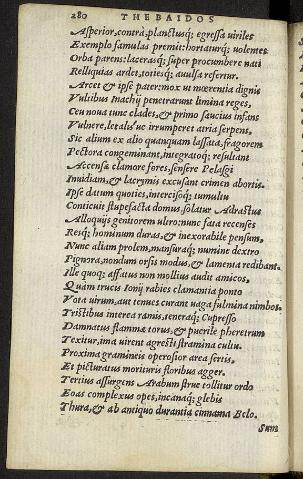 280 THEBAIDOS
Asperior, contrà, planctusq; egressa uiriles
Exemplo famulas premit: hortaturq; uolentes
Orba parens: lacerasq; super procumbere nati
Relliquias ardet, totiesq; auulsa refertur.
Arcet & ipse pater: mox ut mœrentia dignis
Vultibus Inachij penetrarunt limina reges,
Ceu noua tunc clades, & primo saucius infans
Vulnere, letalis ue irrumperet atria serpens,
Sic alium ex alio quanquam lassata, fragorem
Pectora congeminant, integratoq; resultant
Accensæ clamore fores: sensere Pelasgi
Inuidiam, & lacrymis excusant crimen obortis.
Ipse datum quoties, intercisoq; tumultu
Conticuit stupefacta domus, solatur Adrastus
Alloquijs genitorem ultro: nunc fata recensens
Resq; hominum duras, & inexorabile pensum,
Nunc aliam prolem, mansuraq; numine dextro
Pignora, nondum orsis modus, & lamenta redibant.
Ille quoq; affatus non mollius audit amicos,
Quàm trucis Ionij rabies clamantia ponto
Vota uirum, aut tenues curant uaga fulmina nimbos.
Tristibus interea ramis, teneraq; Cupresso
Damnatus flammæ torus, & puerile pheretrum
Texitur, ima uirent agresti stramina cultu.
Proxima gramineis operosior area sertis,
Et picturatus morituris floribus agger.
Tertius assurgens Arabum strue tollitur ordo
Eoas complexus opes, incanaq; glebis
Thura, & ab antiquo durantia cinnama Belo.
Sum